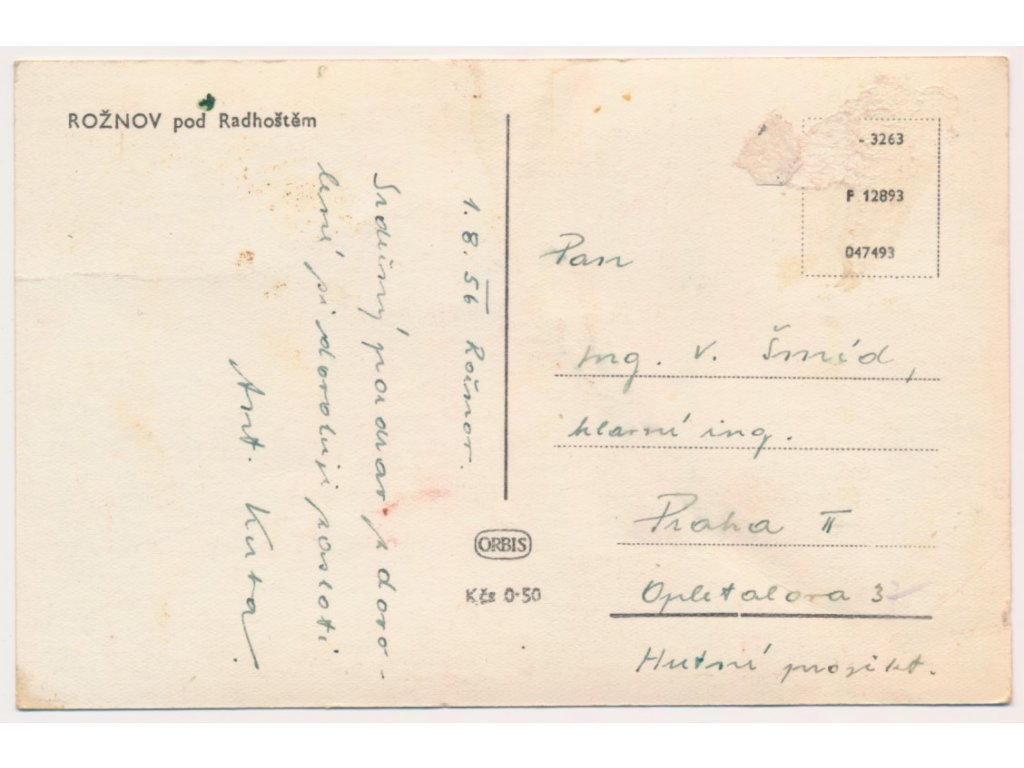 ROŽNOV pod Radhoštěm
1. 8. 56 Rožnov.
Srdečný pozdrav z dovo-
lené si dovoluji zaslati
Ant. Kuta.
ORBIS
Kčs 0·50
- 3263
F 12893
047493
Pan
Ing. V. Šmíd,
hlavní ing.
Praha II
Opletalova
Hutní projekt.